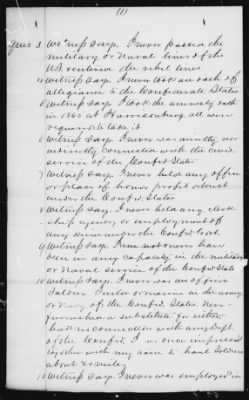 (1)
Ques 3 Witness says. I never passed the
military or Naval lines of the
U.S. sentered the rebel lines
4 Witness says. I never took an oath of
allegiance to the Confederate States
5 Witness says. I took the amnesty oath
in 1865 at Harrisonburg all were
required to take it.
6 Witness says I never was directly nor
indirectly connected with the civil
service of the Confed. States
7 Witness says. I never held any office
or place of honor profit or trust
under the Confed. States
8 Witness says. I never held any clerk
ship agency or employment of
any kind under the Confed. Govt.
9 Witness says. I am not or never have
been in any capacity in the military
or Naval service of the Confed States
10 Witness says. I never was an officer
Soldier Sailor or marine in the army
or Navy of the Confed. States. Never
furnished a substitute for either
had no connection with any
of the Confed. I was once impressed
together with my team to haul Soldiers
about 20 miles
Witness says I never was employed in